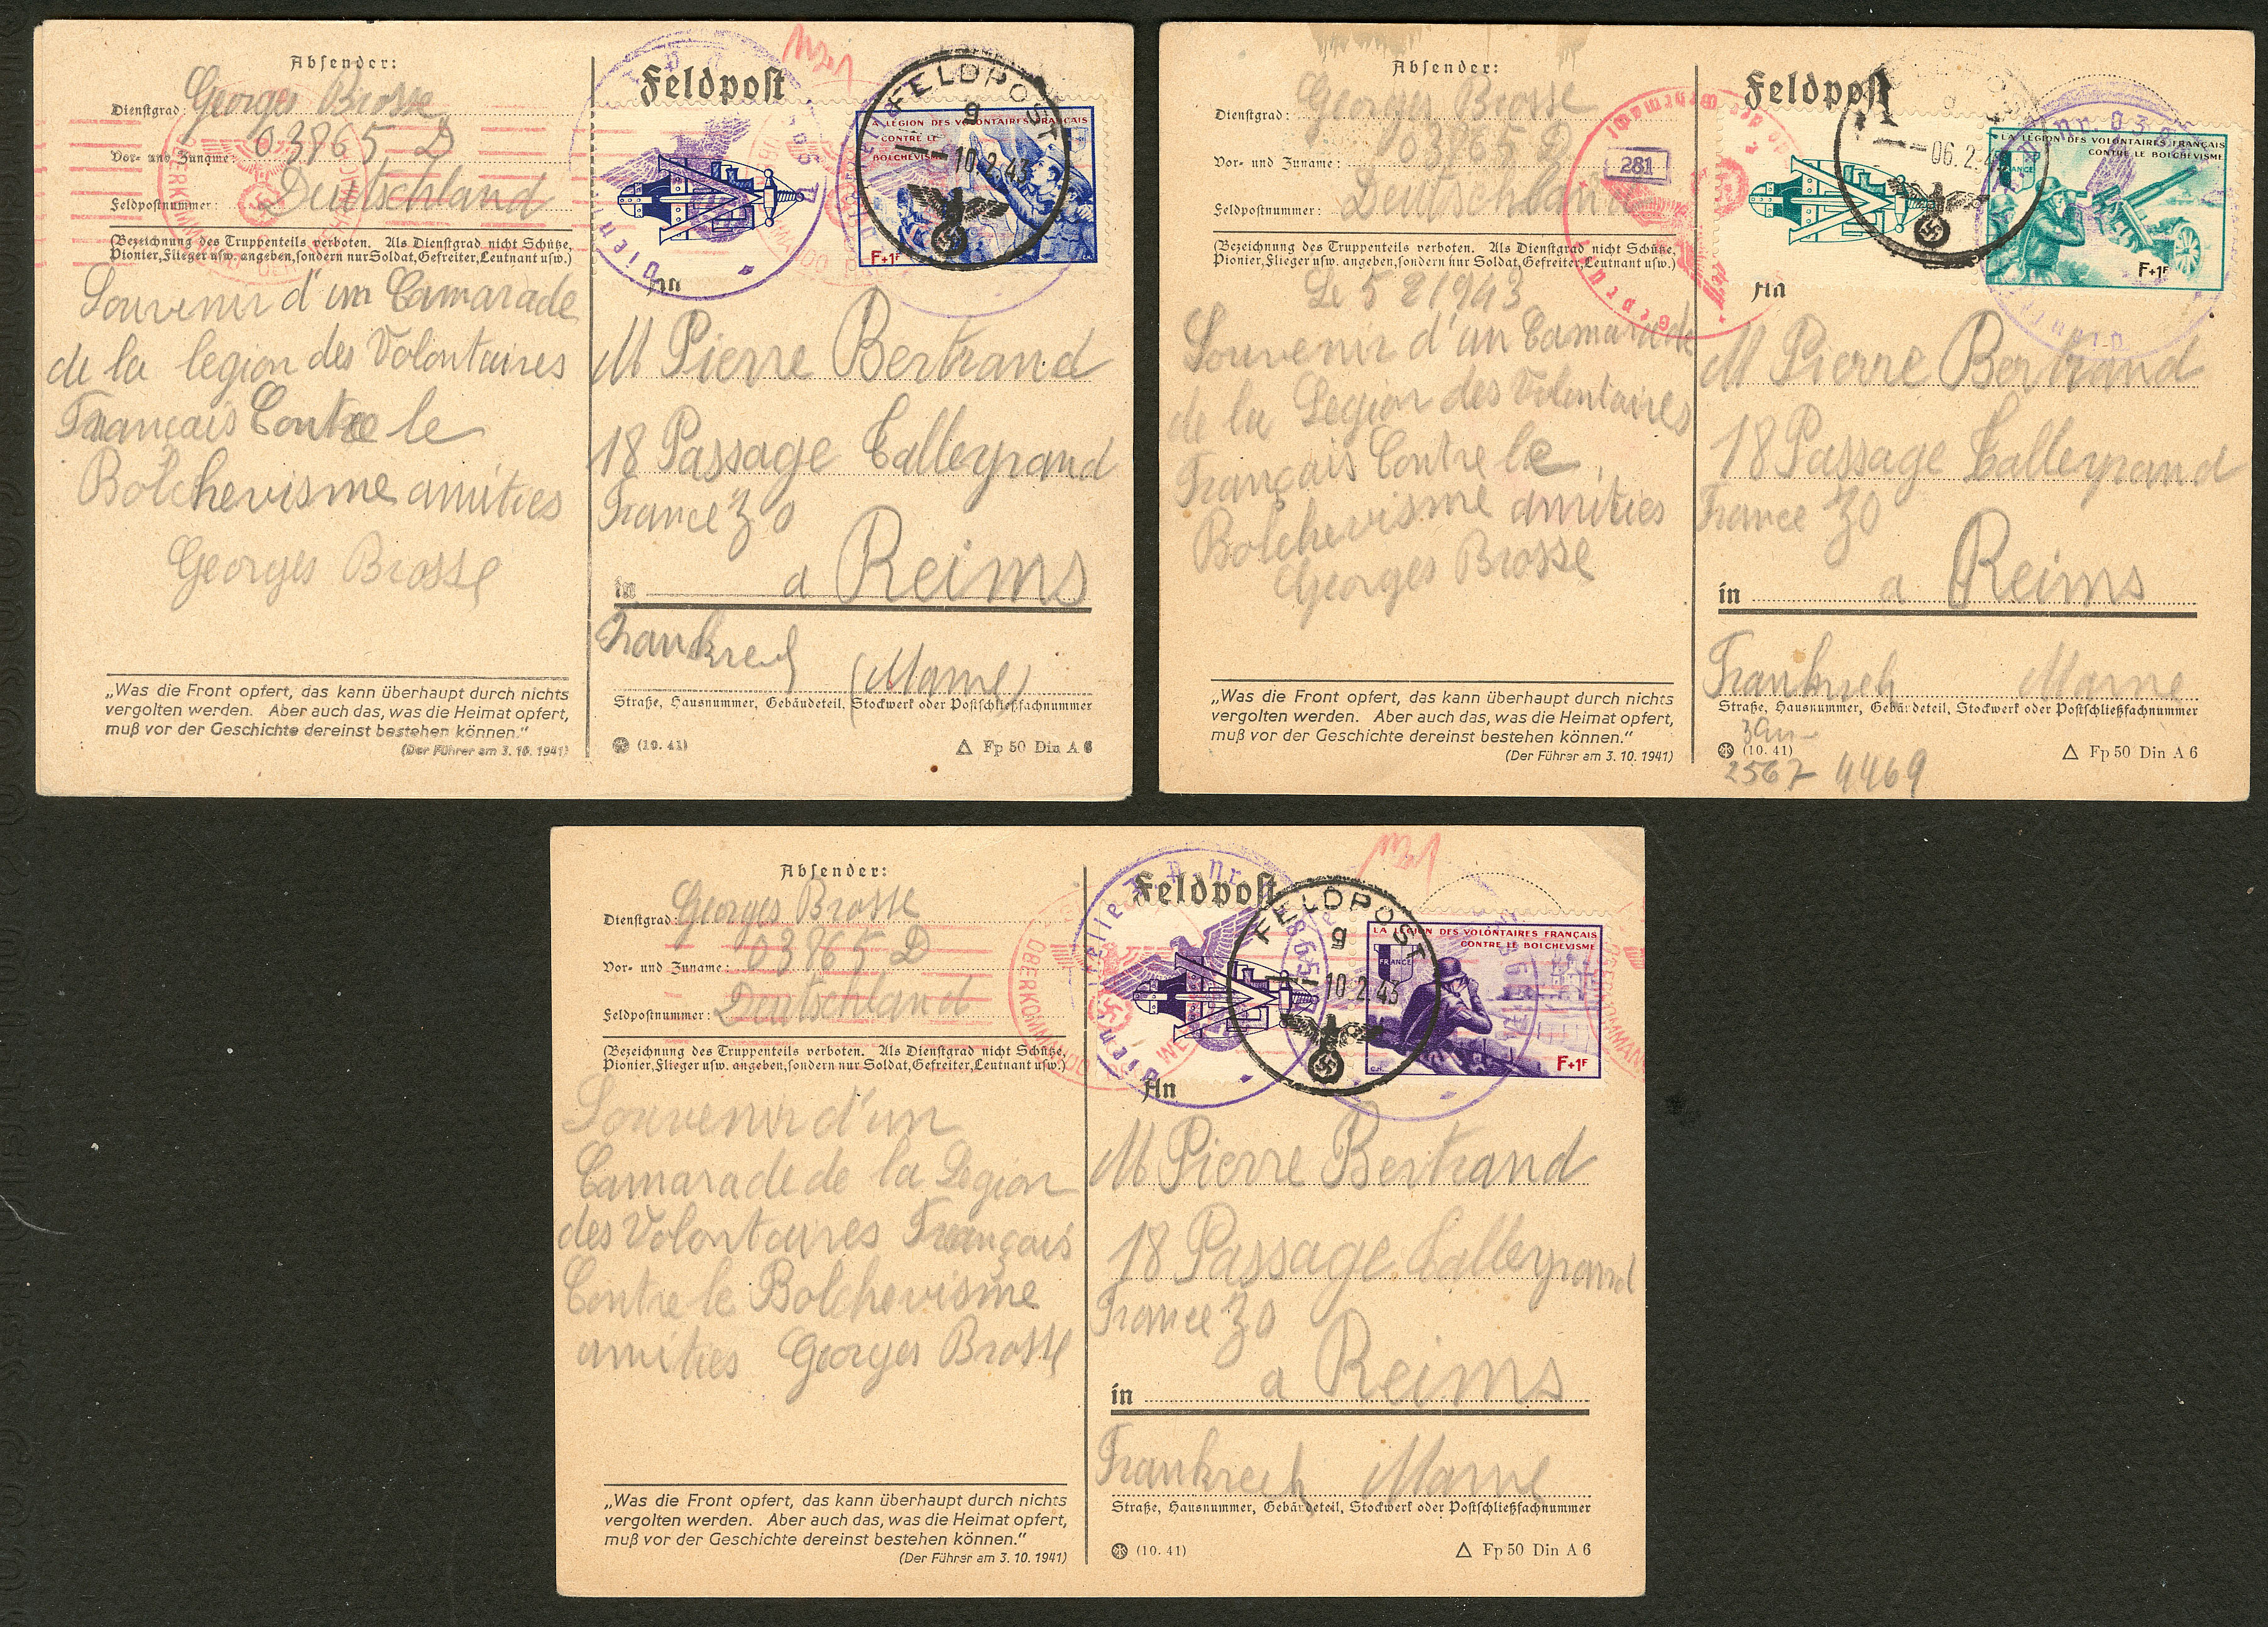 Absender:
Dienstgrad: Georges Brosse
Vor- und Zuname: 03865 D
Feldpostnummer: Deutschland
(Bezeichnung des Truppenteils verboten. Als Dienstgrad nicht Schütze,
Pionier, Flieger usw. angeben, sondern nur Soldat, Gefreiter, Leutnant usw.)
Souvenir d'un Camarade
de la legion des Volontaires
Français Contre le
Bolchevisme amities
Georges Brosse
„Was die Front opfert, das kann überhaupt durch nichts
vergolten werden. Aber auch das, was die Heimat opfert,
muß vor der Geschichte dereinst bestehen können.“
(Der Führer am 3. 10. 1941)
Feldpost
FELDPOST
g
10.2.43
LA LEGION DES VOLONTAIRES FRANÇAIS
CONTRE LE
BOLCHEVISME
F+1F
An
M Pierre Bertrand
18 Passage Talleyrand
France Z0
in a Reims
Frankreich (Marne)
Straße, Hausnummer, Gebäudeteil, Stockwerk oder Postschließfachnummer
(10. 41)
Fp 50 Din A 6
Absender:
Dienstgrad: Georges Brosse
Vor- und Zuname: 03865 D
Feldpostnummer: Deutschland
(Bezeichnung des Truppenteils verboten. Als Dienstgrad nicht Schütze,
Pionier, Flieger usw. angeben, sondern nur Soldat, Gefreiter, Leutnant usw.)
Le 5 2 1943
Souvenir d'un Camarade
de la Legion des Volontaires
Français Contre le
Bolchevisme amities
Georges Brosse
„Was die Front opfert, das kann überhaupt durch nichts
vergolten werden. Aber auch das, was die Heimat opfert,
muß vor der Geschichte dereinst bestehen können.“
(Der Führer am 3. 10. 1941)
281
Geprüft
Feldpost
A
06.2.43
LA LEGION DES VOLONTAIRES FRANÇAIS
CONTRE LE BOLCHEVISME
FRANCE
F+1F
An
M Pierre Bertrand
18 Passage Talleyrand
France Z0
in a Reims
Frankreich Marne
Straße, Hausnummer, Gebäudeteil, Stockwerk oder Postschließfachnummer
(10. 41)
2567 4469
Fp 50 Din A 6
Absender:
Dienstgrad: Georges Brosse
Vor- und Zuname: 03865 D
Feldpostnummer: Deutschland
(Bezeichnung des Truppenteils verboten. Als Dienstgrad nicht Schütze,
Pionier, Flieger usw. angeben, sondern nur Soldat, Gefreiter, Leutnant usw.)
Souvenir d'un
Camarade de la Legion
des Volontaires Français
Contre le Bolchevisme
amities Georges Brosse
„Was die Front opfert, das kann überhaupt durch nichts
vergolten werden. Aber auch das, was die Heimat opfert,
muß vor der Geschichte dereinst bestehen können.“
(Der Führer am 3. 10. 1941)
Feldpost
FELDPOST
g
10.2.43
OBERKOMMANDO
LA LEGION DES VOLONTAIRES FRANÇAIS
CONTRE LE BOLCHEVISME
FRANCE
F+1F
An
M Pierre Bertrand
18 Passage Talleyrand
France Z0
in a Reims
Frankreich Marne
Straße, Hausnummer, Gebäudeteil, Stockwerk oder Postschließfachnummer
(10. 41)
Fp 50 Din A 6